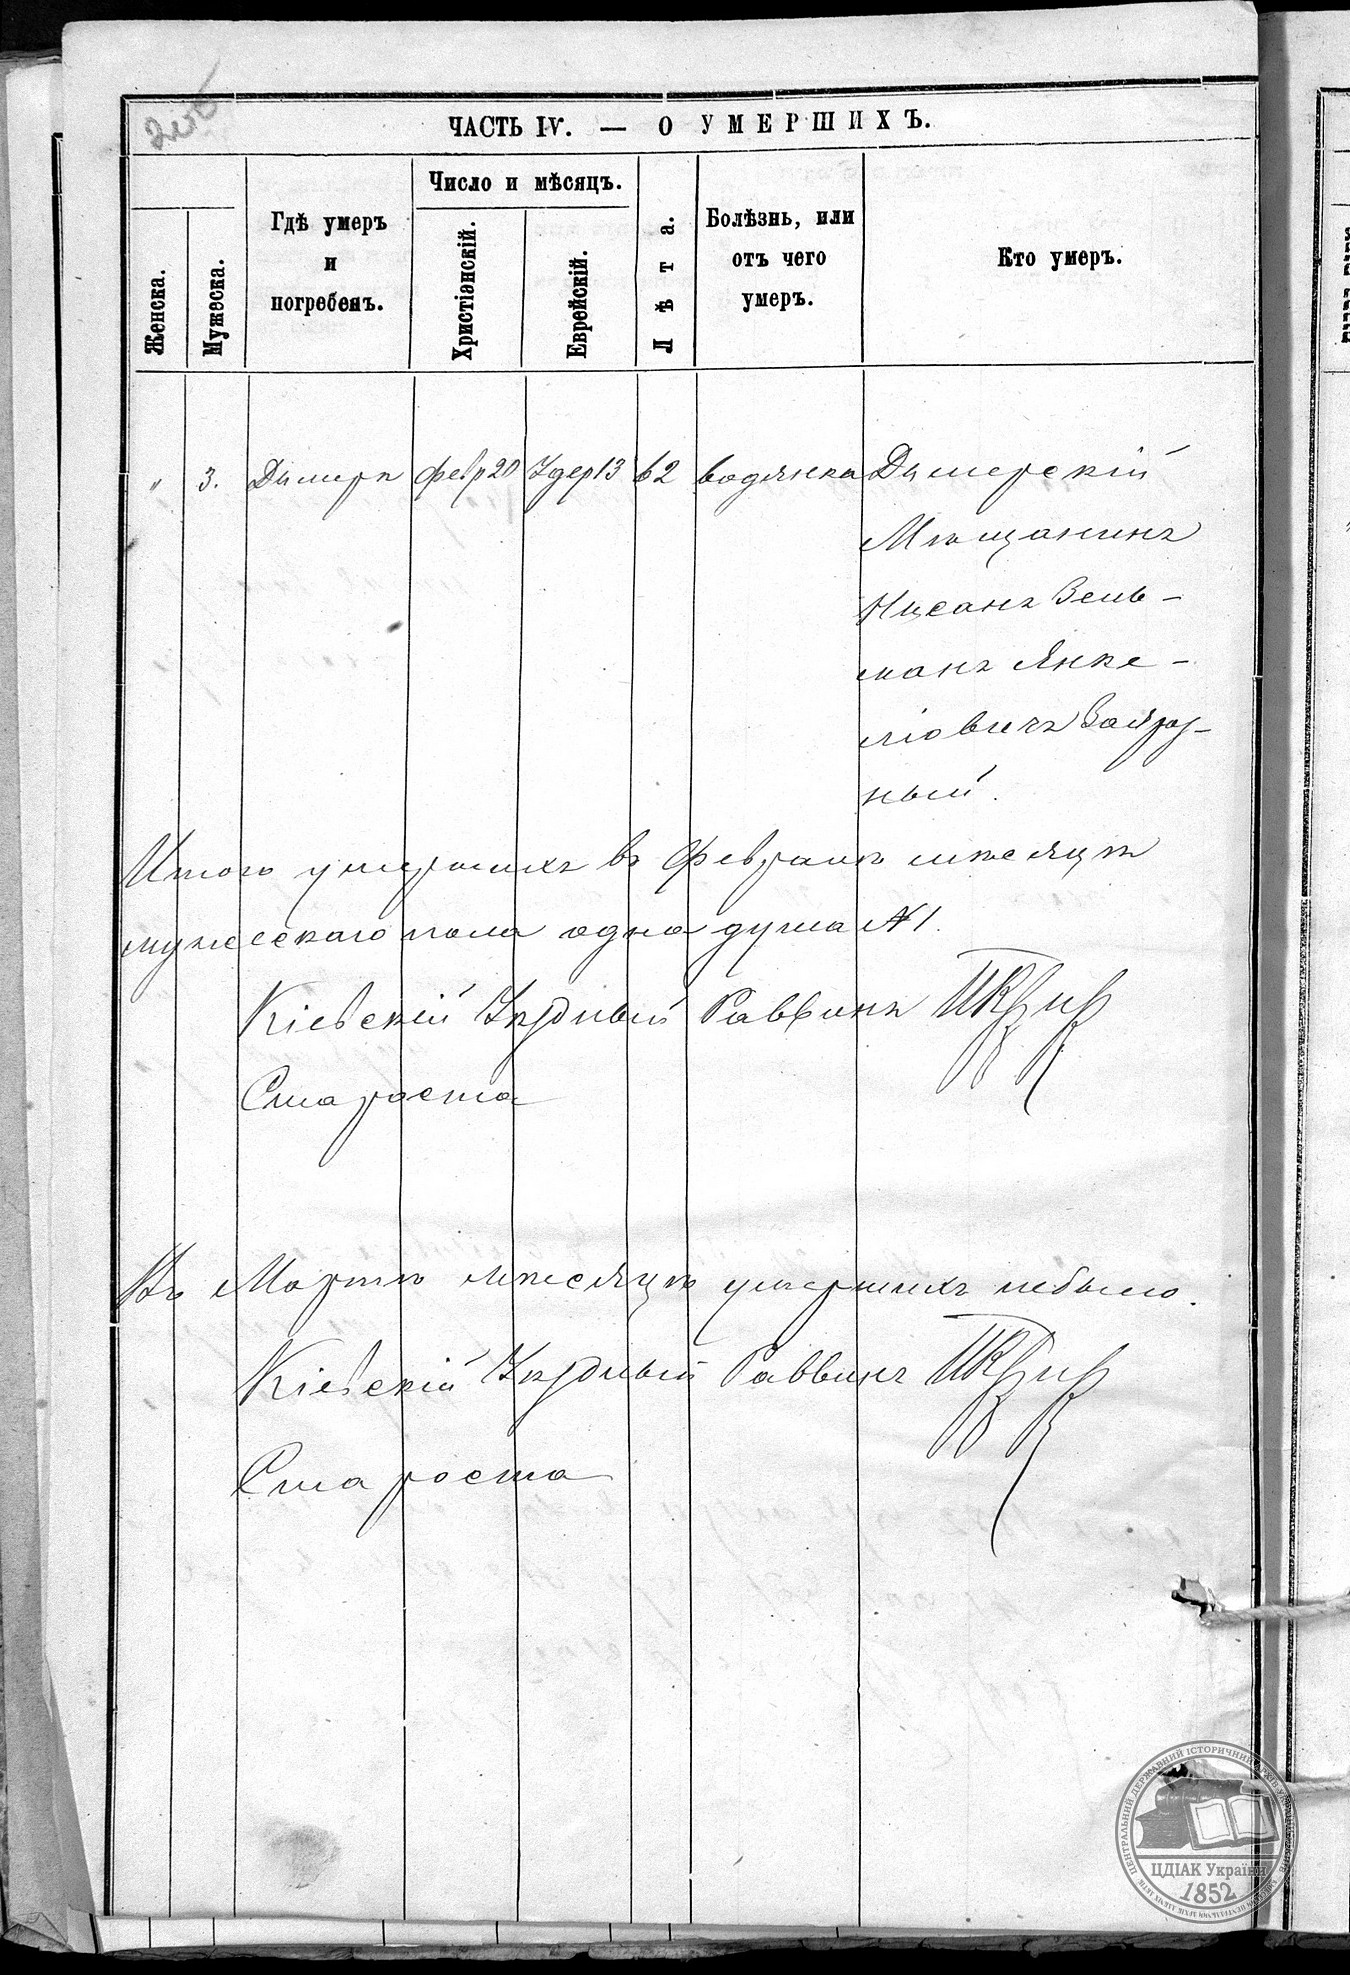 ЧАСТЬ IV. — О УМЕРШИХЪ.
Женска.
Мужеска.
Гдѣ умеръ и погребенъ.
Число и мѣсяцъ.
Христіанскій.
Еврейскій.
Лѣта.
Болѣзнь, или отъ чего умеръ.
Кто умеръ.
" 3. Дымеръ февр 20 Удер 13 62 водянка Дымерскій
Мѣщанинъ
Нисанъ Зель-
манъ Янке-
ліовичъ
ный.
Итого умершихъ въ Февралѣ мѣсяцѣ
мужескаго пола одна душа №1.
Кіевскій Уѣздный Раввинъ
Староста
Въ Мартѣ мѣсяцѣ умершихъ небыло.
Кіевскій Уѣздный Раввинъ
Староста
ЦЕНТРАЛЬНИЙ ДЕРЖАВНИЙ ІСТОРИЧНИЙ АРХІВ УКРАЇНИ
ЦДІАК України
1852